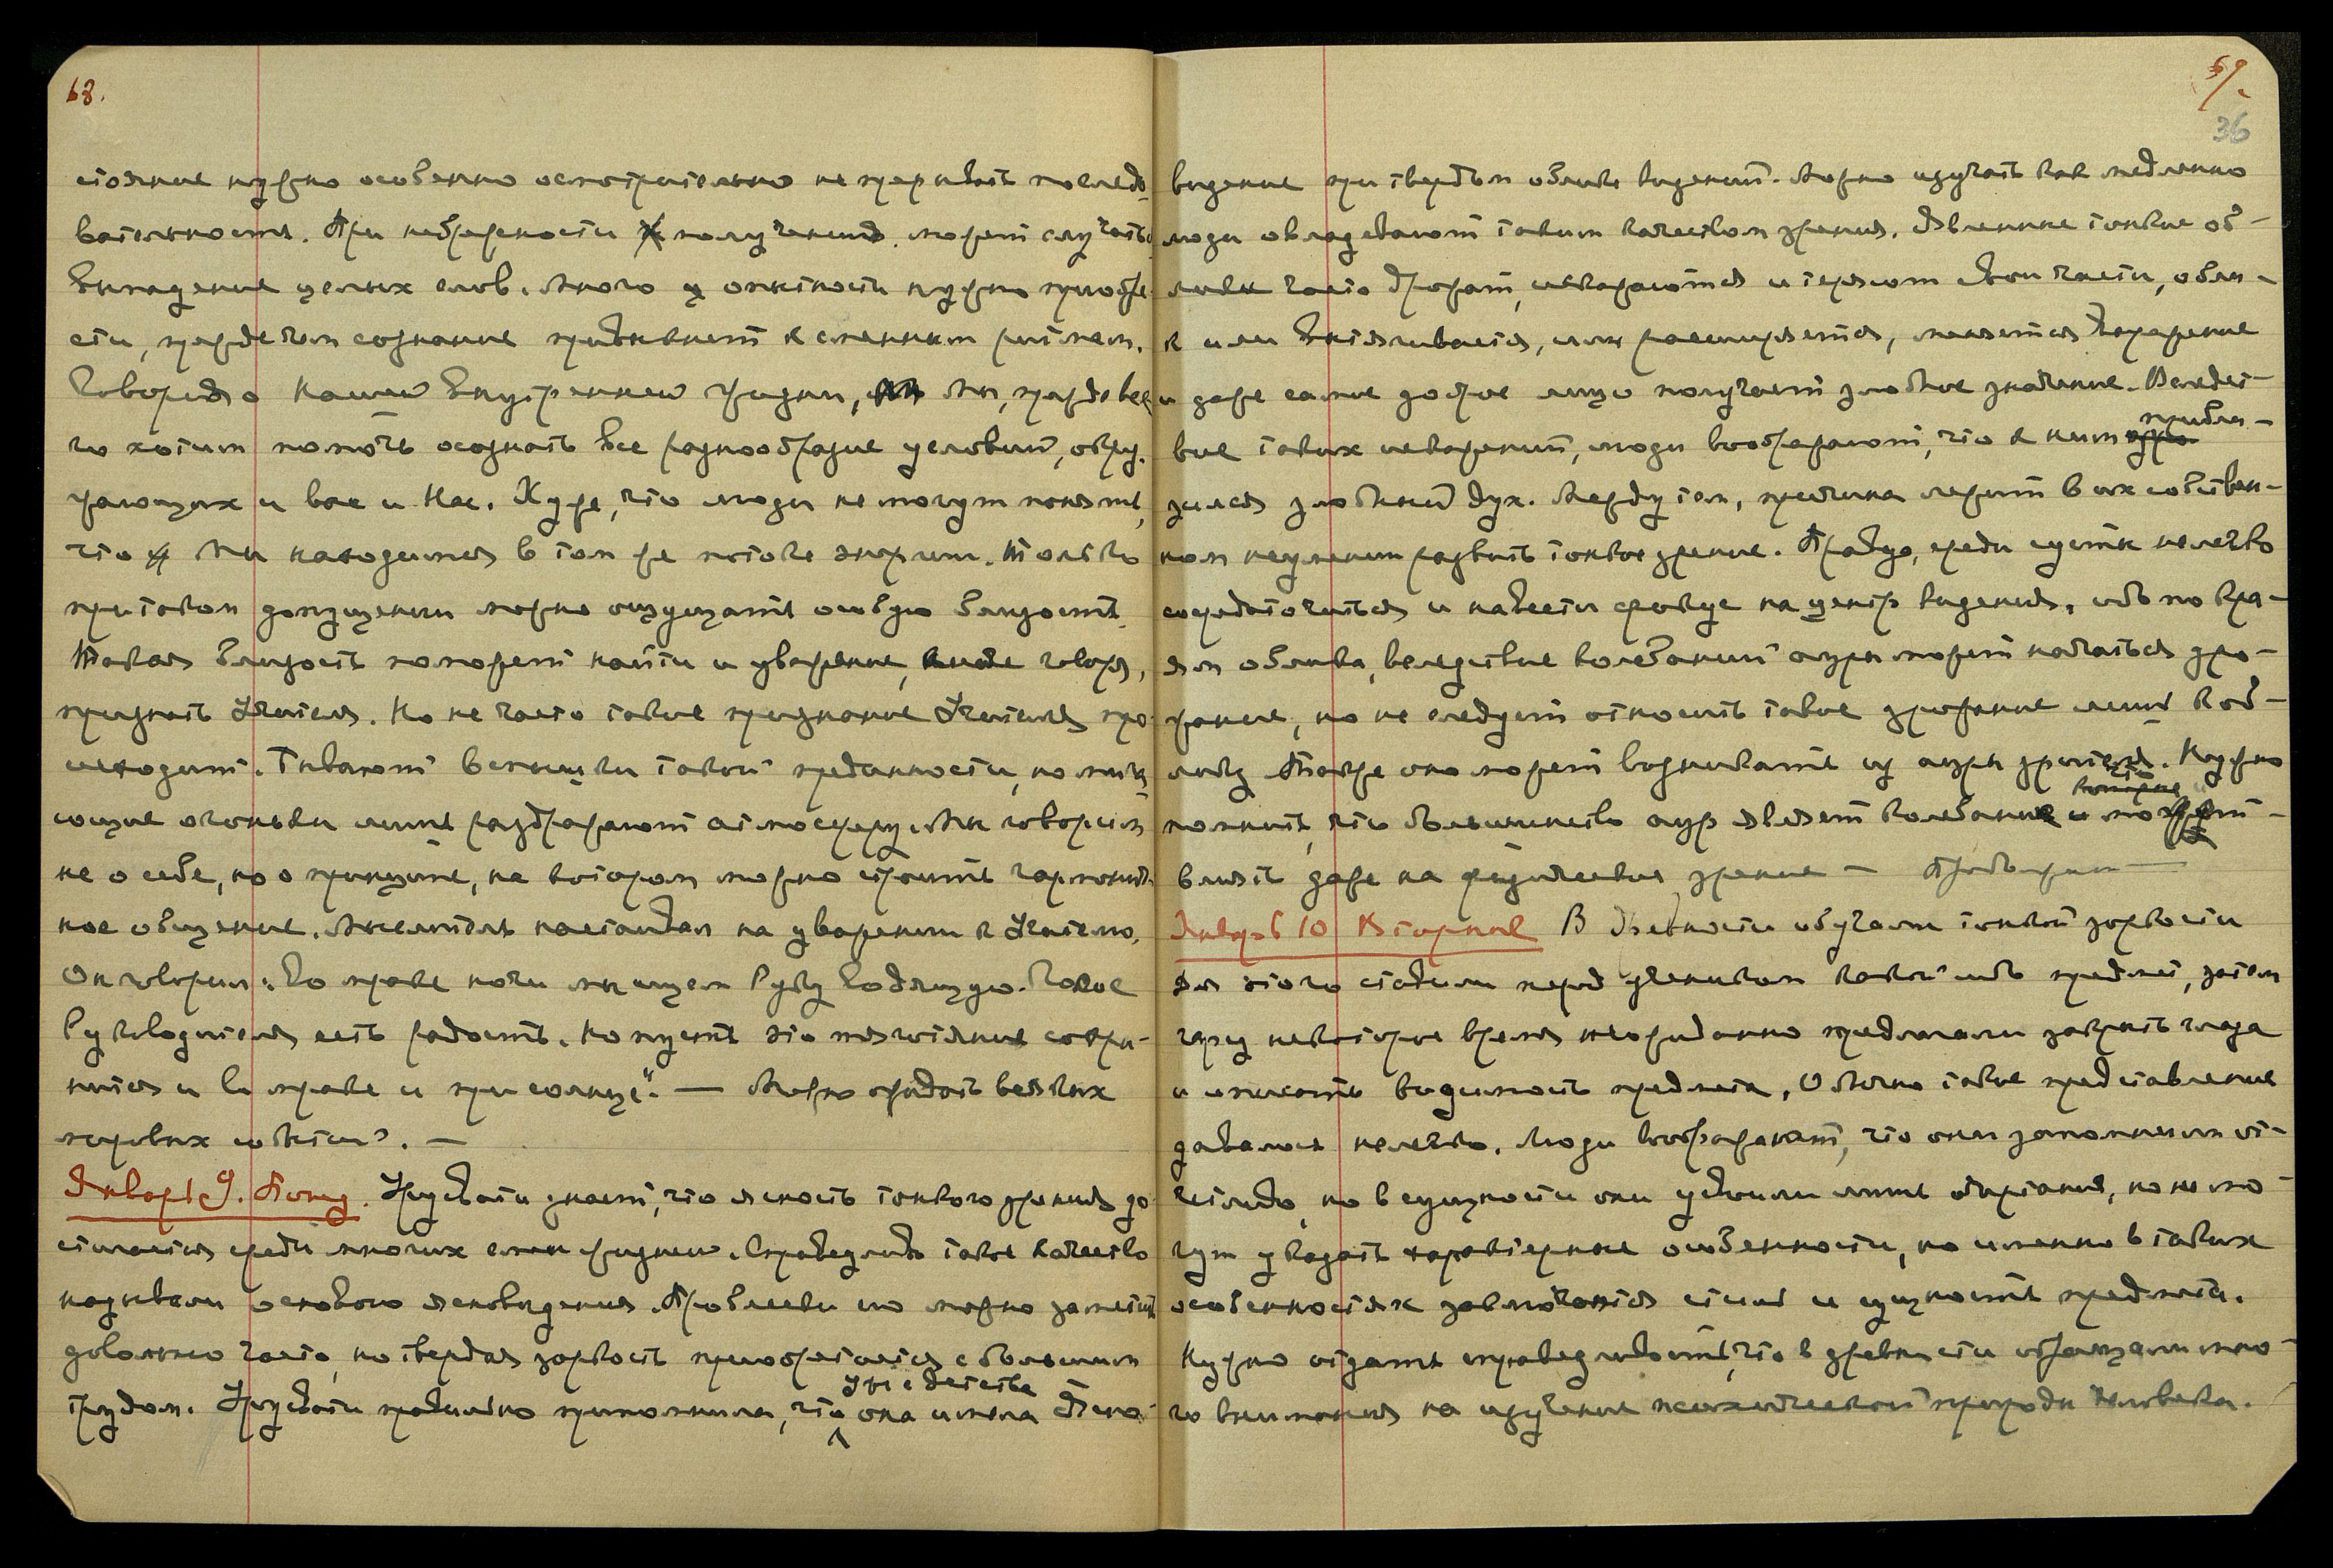 68.
стояние нужно особенно осмотрительно не прерывать последо-
вательность. При небрежности к получению может случаться
выпадение целых слов. Много опытности нужно приобре-
сти, прежде чем сознание привыкнет к сменным ритмам.
Говорят о Нашей Внутренней Жизни, Мы, прежде все-
го хотим помочь осознать все разнообразие условий, окру-
жающих и вас и Нас. Хуже, что люди не могут понять,
что Мы находимся в том же потоке энергии. Только
при таком допущении можно ощущать особую близость.
Такая близость поможет найти и уважение, иначе говоря,
признать Учителя. Но не часто такое признание Учителя про-
исходит. Бывают вспышки такой преданности, но мига-
ющие огоньки лишь раздражают атмосферу. Мы говорим
не о себе, но о принципе, на котором можно строить гармонич-
ное общение. Мыслитель настаивал на уважении к Учителю.
Он говорил: "Во мраке ночи мы ищем Руку Водящую. Такое
Руководителя есть радость. Но пусть это тяготение сохра-
нится и во мраке и при солнце". — Можно ожидать всяких
мировых событий. —
Январь 9. Понед. Урусвати знает, что ясность тонкого зрения до-
стигается среди многих смен жизней. Справедливо такое качество
называли основою ясновидения. Проблески его можно заметить
довольно часто, но твердая зоркость приобретается с большим
трудом. Урусвати правильно припомнила, что уже с детства она имела ясно-
69.
36
видение при твердом облике видений. Можно изучать как медленно
люди овладевают таким качеством зрения. Явленные тонкие об-
лики часто дрожат, искажаются и теряют свои части, обли-
к или вытягивается, или расширяется, меняется выражение
и даже самое доброе лицо получает злобное значение. Вследст-
вие таких искажений, люди воображают, что к ним прибли-
зился злобный дух. Между тем, причина лежит в их собствен-
ном неумении развить тонкое зрение. Правда, среди суеты нелегко
сосредоточиться и навести фокус на центр видения, ибо по кра-
ям облика, вследствие колебаний ауры может начаться дро-
жание, но не следует относить такое дрожание лишь к об-
лику. Также оно может возникать из ауры зрителя. Нужно
помнить, что большинство аур являет колебание, что и может
влиять даже на физическое зрение —
Январь 10 Вторник В древности обучали тонкой зоркости
для этого ставили перед учеником какой либо предмет, затем
через некоторое время неожиданно предлагали закрыть глаза
и описать видимость предмета. Обычно такое представление
давалось нелегко. Люди воображают, что они запомнили от-
четливо, но в сущности они усвоили лишь очертания, но не мо-
гут указать характерные особенности, но именно в таких
особенностях заключается стиль и сущность предмета.
Нужно отдать справедливость, что в древности обращали мно-
го внимания на изучение психической природы человека.